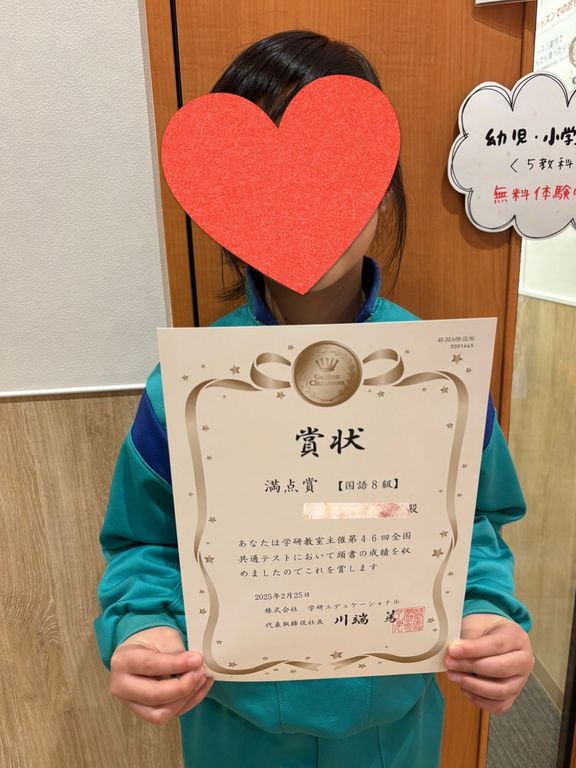 幼児・小学
く5教科
無料体験
40-32A09 (2/6)
3001445
Gakken
Classroom
賞状
満点賞 【国語8級】
殿
あなたは学研教室主催第46回全国
共通テストにおいて頭書の成績を収
めましたのでこれを賞します
2025年2月25日
株式会社 学研エデュケーショナル
代表取締役社長 川端 篤